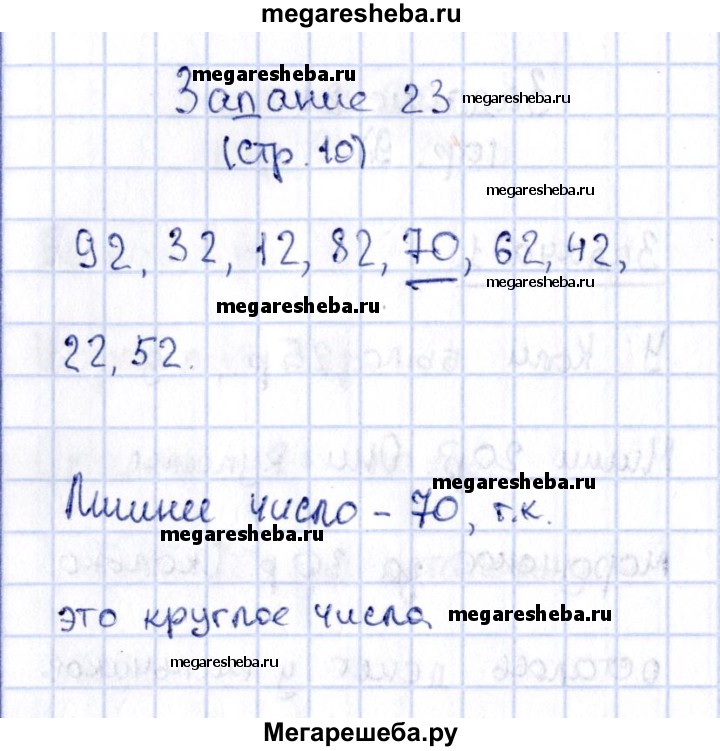 megaresheba.ru
megaresheba.ru
Задание 23 megaresheba.ru
(стр. 10)
megaresheba.ru
92, 32, 12, 82, 70, 62, 42,
megaresheba.ru
megaresheba.ru
22, 52.
megaresheba.ru
Лишнее число – 70, т.к.
megaresheba.ru
это круглое число megaresheba.ru
megaresheba.ru
Мегарешеба.ру